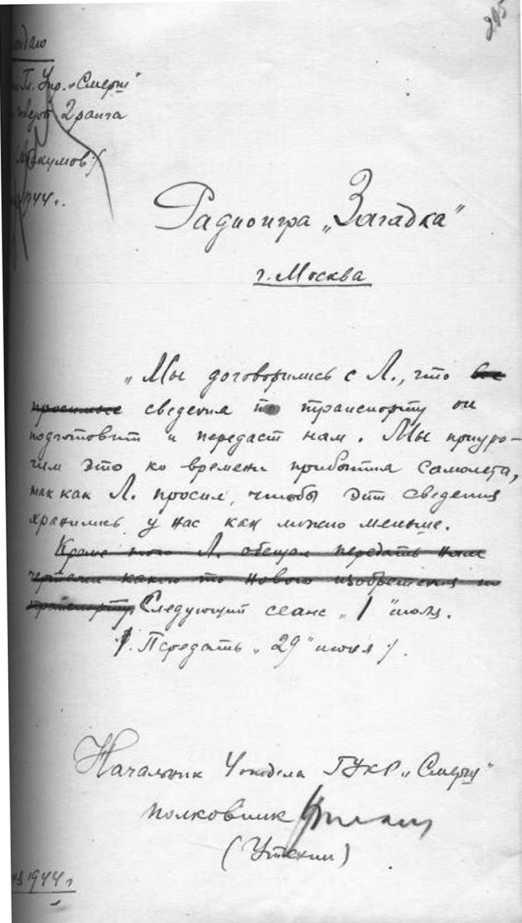 205
Гл. Упр. „Смерш"
2 ранга
1944 г.
Радиоигра „Загадка"
г. Москва
„Мы договорились с Л., что все
просимые сведения по транспорту он
подготовит и передаст нам. Мы приуро-
чим это ко времени прибытия самолета,
так как Л. просил, чтобы эти сведения
хранились у нас как можно меньше.
Кроме того Л. обещал передать нам
чертежи какого то нового изобретения по
транспорту. Следующий сеанс „1" июля.
/. Передать „29" июня /.
Начальник 4 отдела ГУКР „Смерш"
полковник
(Утехин)
1944 г